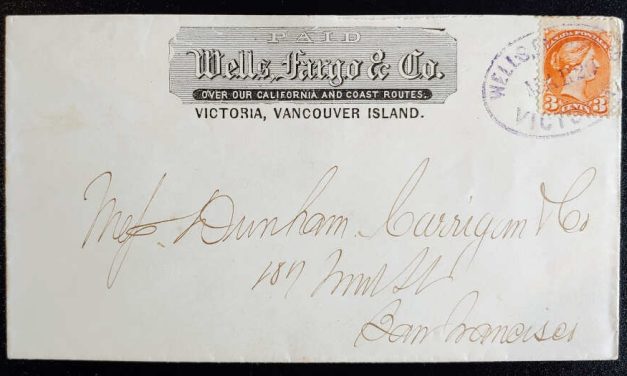 PAID
Wells, Fargo & Co.
OVER OUR CALIFORNIA AND COAST ROUTES.
VICTORIA, VANCOUVER ISLAND.
WELLS,
VICTO
CANADA POSTAGE
3 CENTS 3
Mess Dunham Carrigan & Co
St
San Francisco